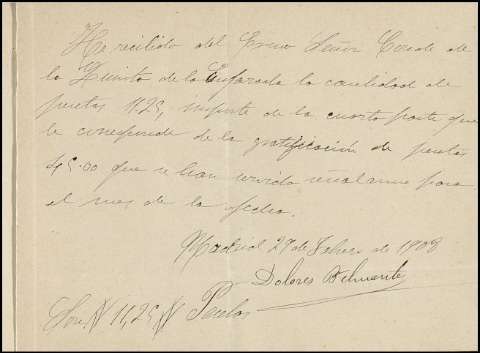 He recibido del Excmo Señor Conde de
la Quinta de la Enjarada la cantidad de
pesetas 11.25, importe de la cuarta parte que
le corresponde de la gratificación de pesetas
45.00 que se han servido señalarme para
el mes de la fecha.
Madrid 29 de Febrero de 1908
Dolores Belmonte
Son # 11,25 # Pesetas